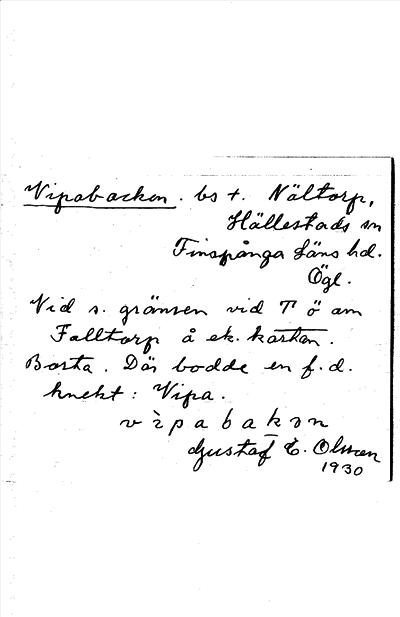 Vipabacken. bs t. Nältorp,
Hällestads sn
Finspånga läns hd.
Ögl.
Vid s. gränsen vid T ö om
Falltorp å ek. kartan.
Borta. Där bodde en f. d.
knekt: Vipa.
vìpabakən
Gustaf E. Olsson
1930